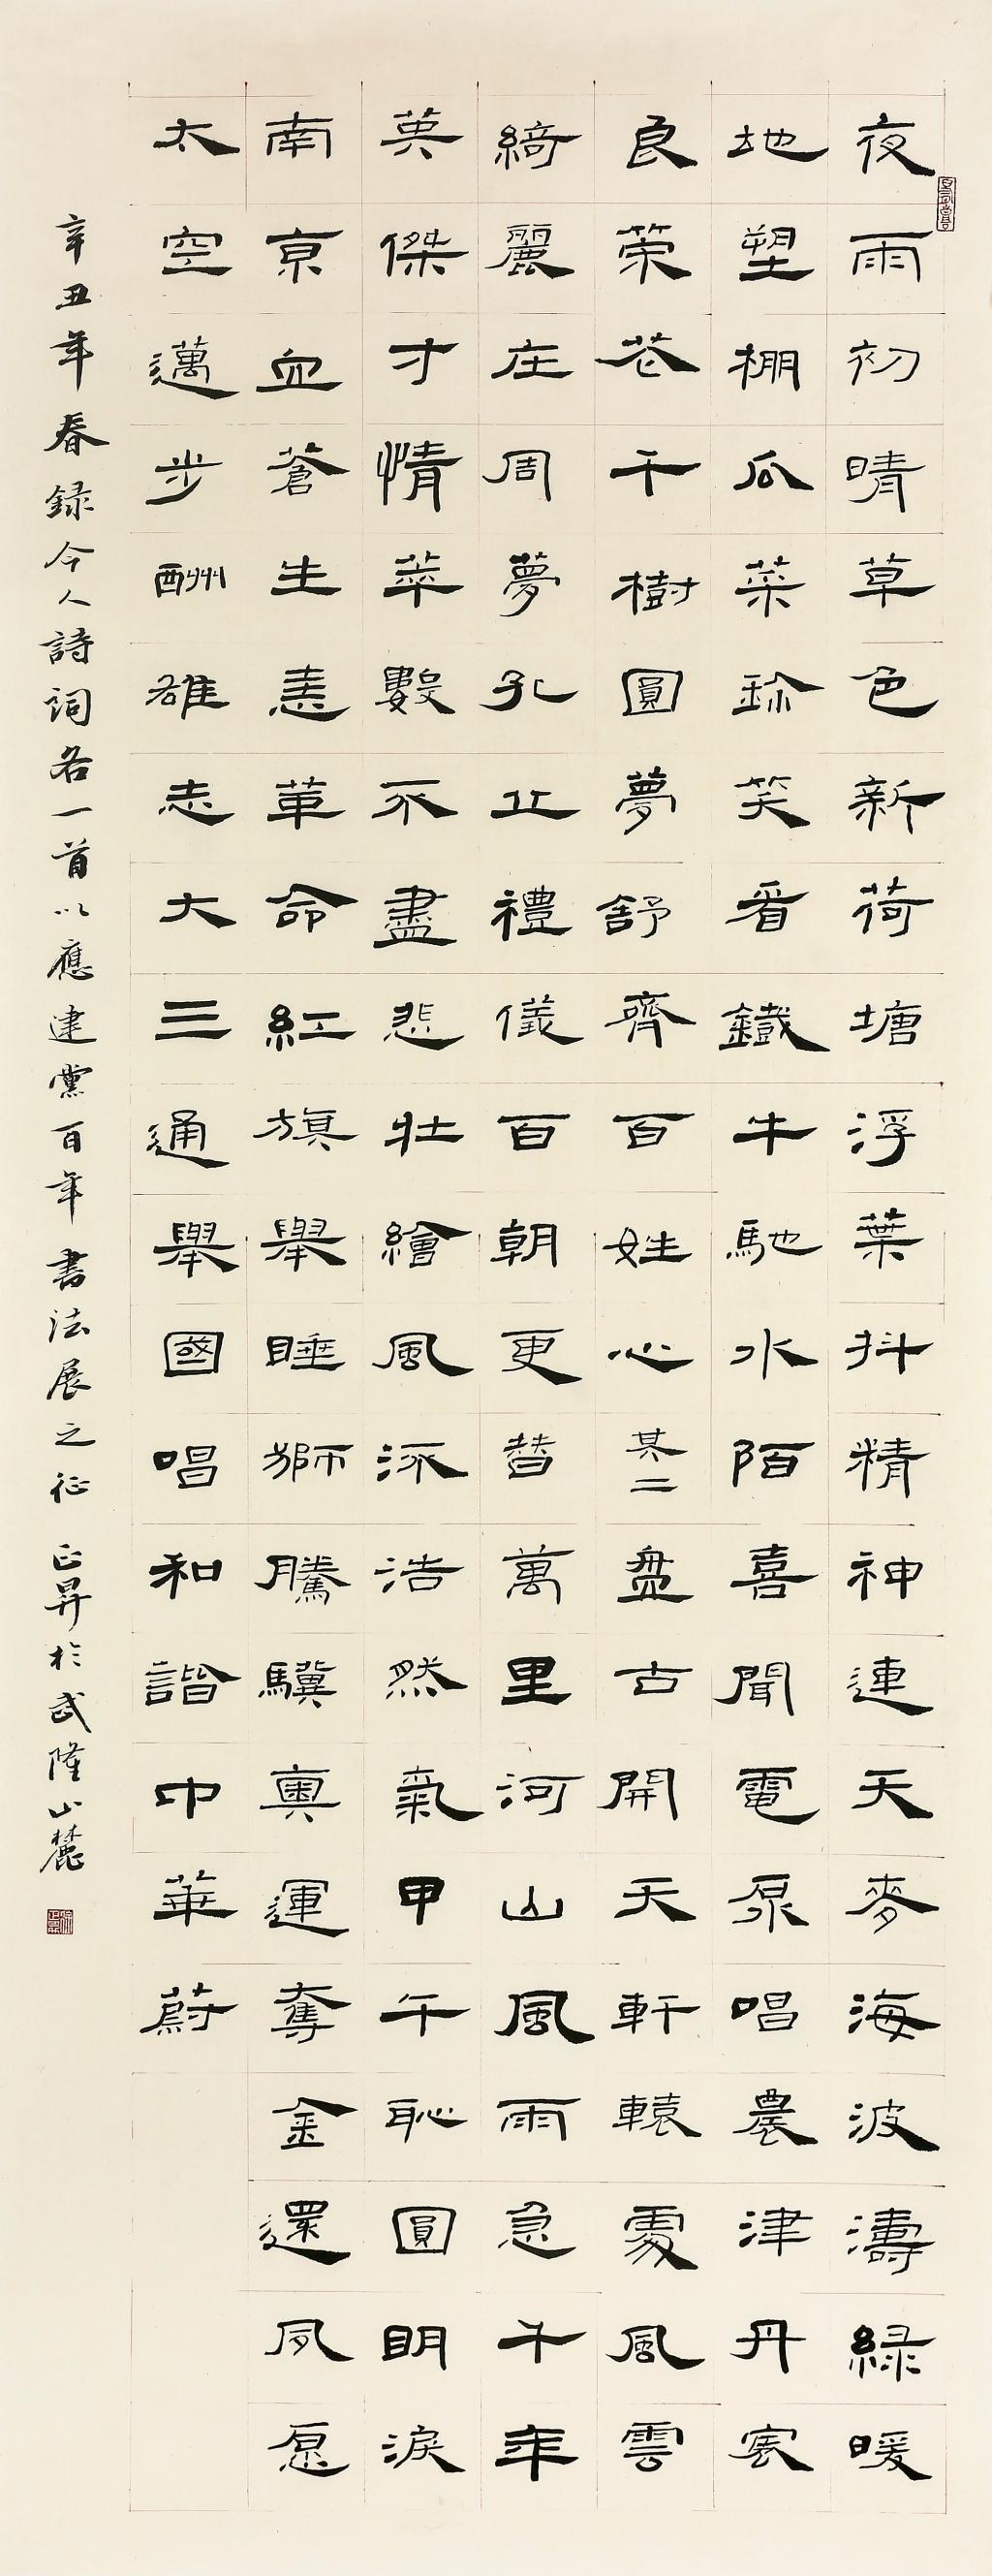 夜雨初晴草色新荷塘浮葉抖精神連天麥海波濤緑暖
地塑棚瓜菜珍笑看鐵牛馳水陌喜聞電泵唱農津丹宸
良策花千樹圓夢舒齊百姓心其二盘古開天軒轅處風雲
綺麗庄周夢孔丘禮儀百朝更替萬里河山風雨急千年
英傑才情萃數不盡悲壯繪風流浩然氣甲午恥圓明淚
南京血蒼生恚革命紅旗舉睡獅騰驥奥運奪金還夙愿
太空邁步酬雄志大三通舉國唱和諧中華蔚
辛丑年春録今人詩詞各一首以應建黨百年書法展之征正昇於武隆山麓